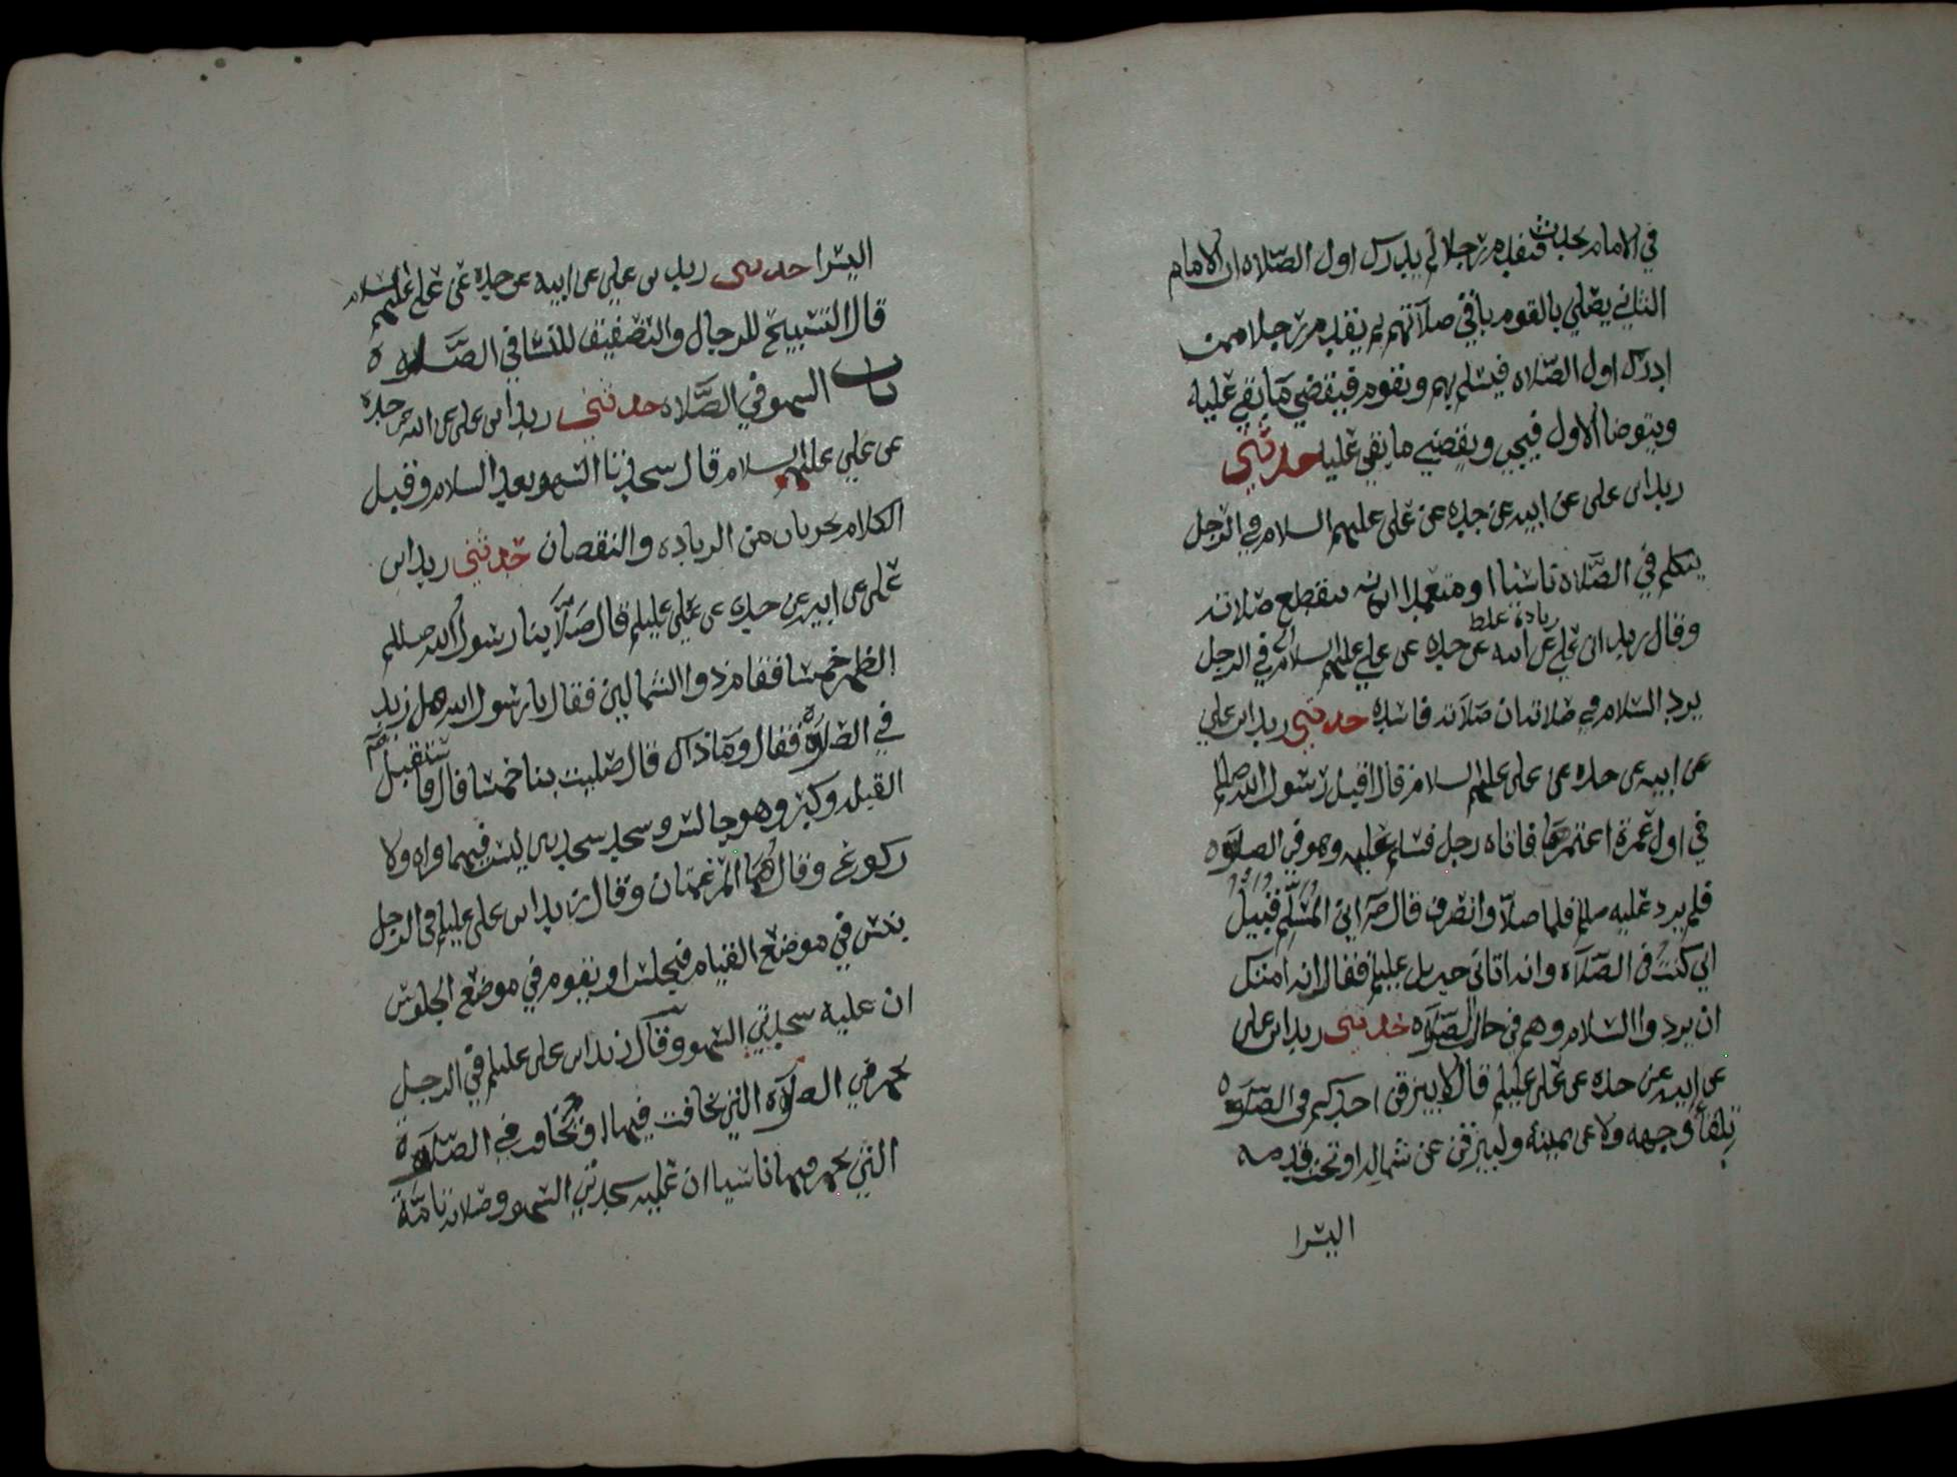 في الامام يحدث فيقدم رجلا لم يدرك اول الصلاه ان الامام
الثاني يصلي بالقوم باقي صلاتهم ثم يقدم رجلا ممن
ادرك اول الصلاه فيسلم بهم ويقوم فيقضي ما بقي عليه
ويتوضا الاول فيجي ويقضي ما بقي عليه حدثني
زيد ابن علي عن ابيه عن جده عن علي عليهم السلام في الرجل
يتكلم في الصَّلاه ناسيا او متعمدا انه تنقطع صلاته
زيادة غلط
وقال زيد ابن علي عن ابيه عن جده عن علي عليهم السلام في الرجل
يرد السلام في صلاته ان صلاته فاسده حدثني زيد ابن علي
عن ابيه عن جده عن علي عليهم السلام قال اقبل رسول الله صللم
في اول عمرة اعتمرها فاتاه رجل فسلم عليه وهو في الصلوه
فلم يرد عليه صللم فلما صلا وانصرف قال اين المُسَلِّم قُبَيلُ
اني كنتُ في الصَّلاه وانه اتاني جبريل عليلم فقال انه امتك
ان يردوا السلام وهم في حال الصَّلوه حدثني زيد ابن علي
عن ابيه عن جده عن علي عليلم قال لا يبزقن احدكم في الصَّلوه
تلقا وجهه ولا عن يمينه وليبزقن عن شماله او تحت قدمه
اليسرا
اليسرا حدثني زيد بن علي عن ابيه عن جده عن علي عليهم السلام
قال التسبيح للرجال والتصفيق للنسا في الصَّلوه
باب السهو في الصَّلاه حدثني زيد ابن علي عن ابيه عن جده
عن علي عليهم السلام قال سجدتا السهو بعد السلام وقبل
الكلام يجزيان من الزياده والنقصان حدثني زيد ابن
علي عن ابيه عن جده عن علي عليلم قال صَلَّا بنا رسول الله صللم
الظهر خمسا فقام ذو الشمالين فقال يا رسول الله هل زيد
في الصلوة فقال وما ذاك قال صليت بنا خمسا قال فاستقبل
القبله وكبر وهو جالس وسجد سجدتين ليس فيهما قراه ولا
ركوع وقال هُمَا المرغمتان وقال زيد ابن علي عليلم في الرجل
ينسى في موضع القيام فيجلس او يقوم في موضع الجلوس
ان عليه سجدتي السهو وقال زيد ابن علي عليلم في الرجل
يجهر في الصلوة التي يخافت فيها او يُخافت في الصَّلوة
التي يجهر فيها ناسيا ان عليه سجدتي السهو وصلاته تامَّة